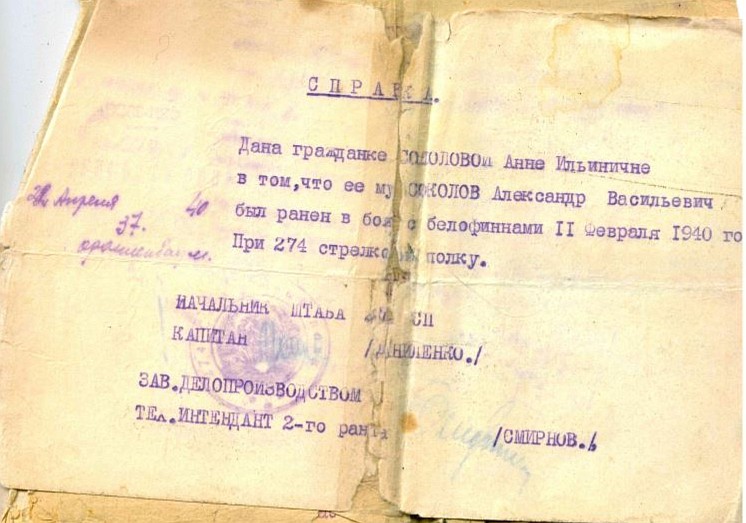 СПРАВКА.
Дана гражданке СОКОЛОВОЙ Анне Ильиничне
в том,что ее му СОКОЛОВ Александр Васильевич
был ранен в бою с белофиннами II Февраля 1940 го
При 274 стрелко полку.
Апреля 40
37.
НАЧАЛЬНИК ШТАБА СП
КАПИТАН /ДАНИЛЕНКО./
ЗАВ.ДЕЛОПРОИЗВОДСТВОМ
ТЕХ.ИНТЕНДАНТ 2-го ранга /СМИРНОВ./